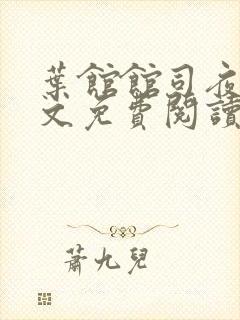 葉館館司夜
文免費閱讀
蕭九兒